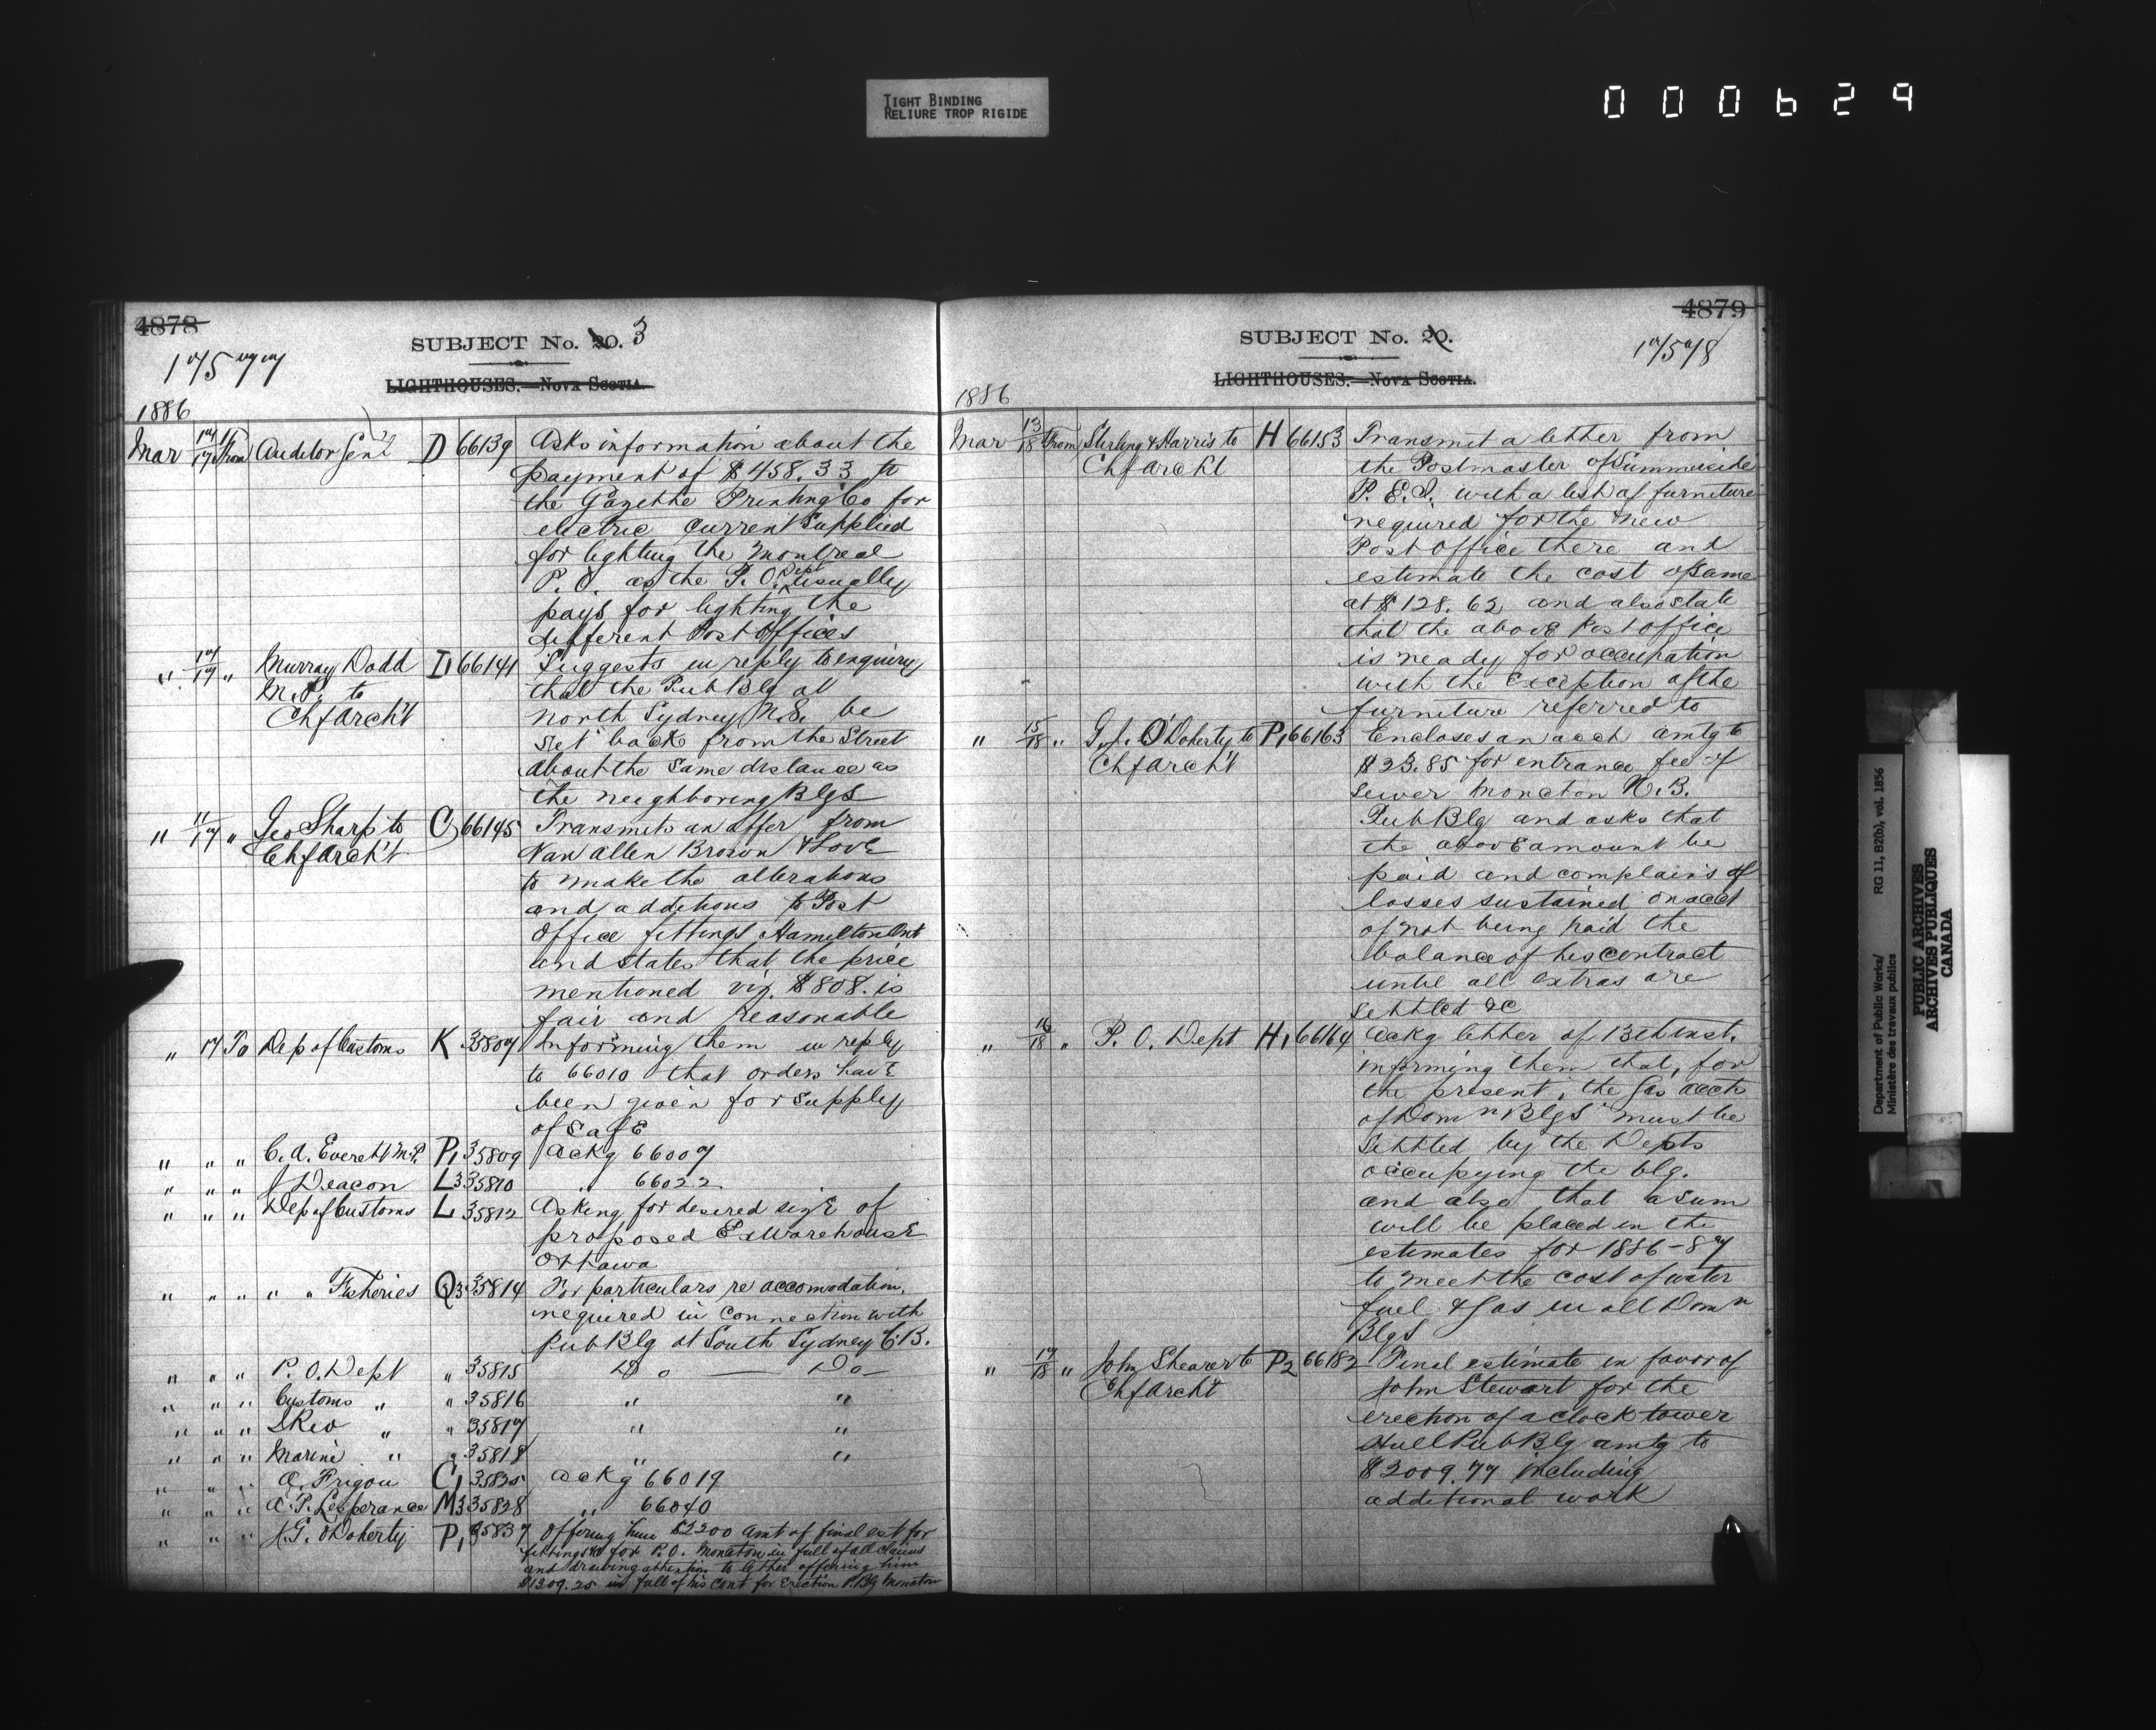 TIGHT BINDING
RELIURE TROP RIGIDE
000629
4878
SUBJECT No. 20. 3
17577
LIGHTHOUSES.—NOVA SCOTIA.
1886
Mar 17/17 From Auditor Genl D 66139 Asks information about the
payment of $458.33 to
the Gazette Printing Co for
electric current supplied
for lighting the Montreal
P. O. as the P. O. Dept usually
pays for lighting the
different Post Offices
" 17/17 " Murray Dodd D 66141 Suggests in reply to enquiry
M.P. to that the Pub Blg at
Chf Archt North Sydney N.S. be
set back from the Street
about the same distance as
the neighboring Blgs
" 11/17 " Geo Sharp to C 66145 Transmits an offer from
Chf Archt Van Allen Brown & Love
to make the alterations
and additions to Post
Office fittings Hamilton Ont
and states that the price
mentioned viz. $808. is
fair and reasonable
" 17 To Dep of Customs K 35807 Informing them in reply
to 66010 that orders have
been given for supply
of safe
" " " C. A. Everett M.P. P1 35809 Ackg 66007
" " " J Deacon L3 35810 " 66022
" " " Dep of Customs L 35812 Asking for desired size of
proposed Ex Warehouse
Ottawa
" " " " " Fisheries Q3 35814 For particulars re accomodation
required in connection with
Pub Blg at South Sydney C.B.
" " " P. O. Dept " 35815 Do — Do —
" " " Customs " " 35816 " "
" " " I Rev " " 35817 " "
" " " Marine " " 35818 " "
" " " A. Frigon C1 35825 Ackg 66019
" " " A. P. Lesperance M3 35828 " 66040
" " " J. G. O'Doherty P1 35837 Offering him $2200 amt of final est for
fittings &c for P.O. Moncton in full of all claims
and drawing attention to letter offering him
$1309.25 in full of his cont for Erection P. Blg Moncton
4879
SUBJECT No. 20.
17578
LIGHTHOUSES.—NOVA SCOTIA.
1886
Mar 13/18 From Stirling & Harris to H 66153 Transmit a letter from
Chf Archt the Postmaster of Summerside
P. E. I. with a list of furniture
required for the new
Post Office there and
estimate the cost of same
at $128.62 and also state
that the above Post office
is ready for occupation
with the exception of the
furniture referred to
" 15/18 " G. J. O'Doherty to P1 66163 Encloses an acct amtg to
Chf Archt $23.85 for entrance fee of
sewer Moncton N. B.
Pub Blg and asks that
the above amount be
paid and complains of
losses sustained on acct
of not being paid the
balance of his contract
until all extras are
settled &c
" 16/18 " P. O. Dept H1 66164 Ackg letter of 13th inst.
informing them that, for
the present, the Gas accts
of Domn Blgs must be
settled by the Depts
occupying the blg.
and also that a sum
will be placed in the
estimates for 1886-87
to meet the cost of water
fuel & Gas in all Domn
Blgs
" 17/18 " John Shearer to P2 66182 Final estimate in favor of
Chf Archt John Stewart for the
erection of a clock tower
Hull Pub Blg amtg to
$2009.77 including
additional work
Department of Public Works/
Ministère des travaux publics
RG 11, B2(b), vol. 1856
PUBLIC ARCHIVES
ARCHIVES PUBLIQUES
CANADA